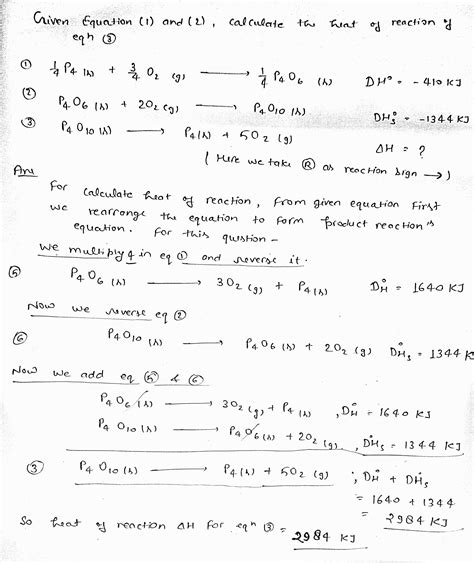 Given Equation (1) and (2), calculate the heat of reaction of
eqn ③
① 1/4 P4 (s) + 3/4 O2 (g) ⟶ 1/4 P4O6 (s) DH° = - 410 KJ
② P4O6 (s) + 2O2 (g) ⟶ P4O10 (s) DHs° = -1344 KJ
③ P4O10 (s) ⟶ P4(s) + 5O2 (g) ΔH = ?
( Here we take Ⓡ as reaction sign ⟶ )
Ans
For calculate heat of reaction, from given equation first
we rearrange the equation to form product reaction's
equation. For this qustion -
we multiply 4 in eq ① and reverse it.
⑤ P4O6 (s) ⟶ 3O2 (g) + P4(s) DH° = 1640 KJ
Now we reverse eq ②
⑥ P4O10 (s) ⟶ P4O6 (s) + 2O2 (g) DH°s = 1344 KJ
Now we add eq ⑤ & ⑥
P4O6 (s) ⟶ 3O2 (g) + P4 (s) , DH° = 1640 KJ
P4O10 (s) ⟶ P4O6 (s) + 2O2 (g) , DH°s = 1344 KJ
③ P4O10 (s) ⟶ P4(s) + 5O2 (g) ; DH° + DH°s
= 1640 + 1344
= 2984 KJ
So heat of reaction ΔH for eqn ③ = 2984 KJ